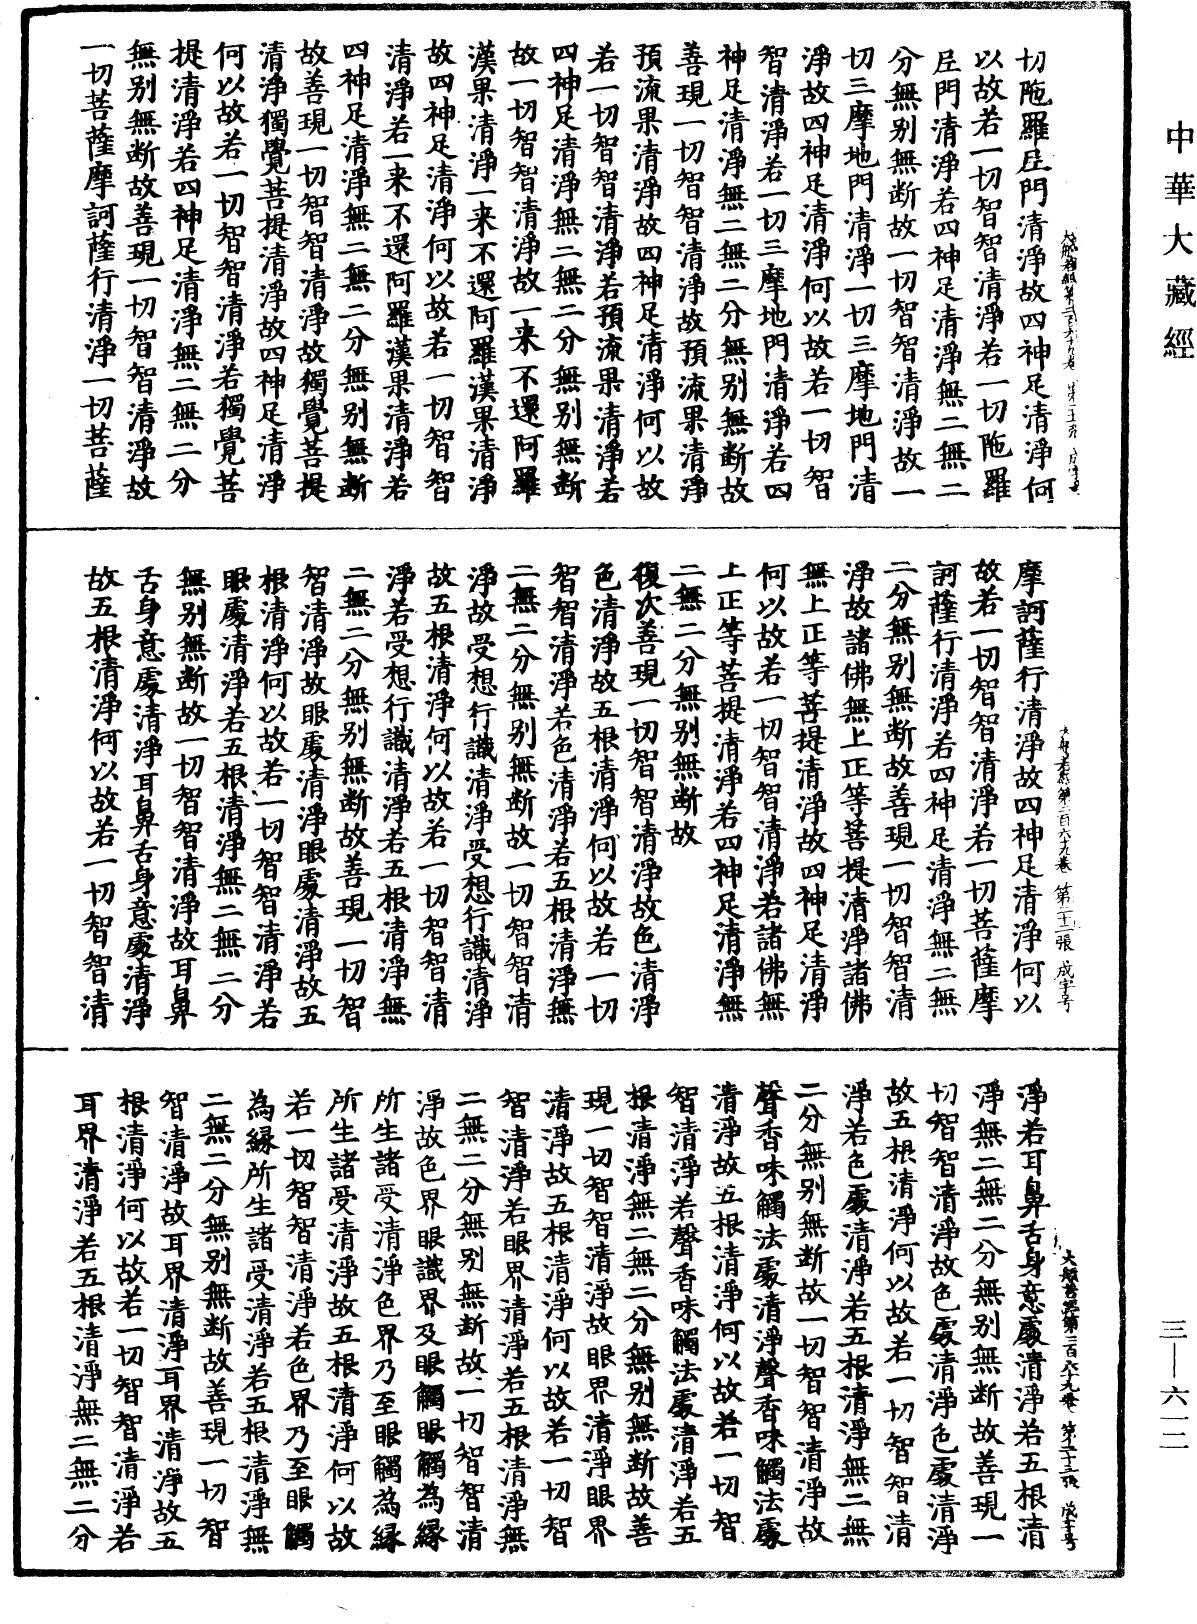 中華大藏經
切陁羅尼門清淨故四神足清淨何
以故若一切智智清淨若一切陁羅
尼門清淨若四神足清淨無二無二
分無別無斷故一切智智清淨故一
切三摩地門清淨一切三摩地門清
淨故四神足清淨何以故若一切智
智清淨若一切三摩地門清淨若四
神足清淨無二無二分無別無斷故
善現一切智智清淨故預流果清淨
預流果清淨故四神足清淨何以故
若一切智智清淨若預流果清淨若
四神足清淨無二無二分無別無斷
故一切智智清淨故一来不還阿羅
漢果清淨一来不還阿羅漢果清淨
故四神足清淨何以故若一切智智
清淨若一来不還阿羅漢果清淨若
四神足清淨無二無二分無別無斷
故善現一切智智清淨故獨覺菩提
清淨獨覺菩提清淨故四神足清淨
何以故若一切智智清淨若獨覺菩
提清淨若四神足清淨無二無二分
無別無斷故善現一切智智清淨故
一切菩薩摩訶薩行清淨一切菩薩
大般若經第二百六十九卷 第二十二張 成字号
摩訶薩行清淨故四神足清淨何以
故若一切智智清淨若一切菩薩摩
訶薩行清淨若四神足清淨無二無
二分無別無斷故善現一切智智清
淨故諸佛無上正等菩提清淨諸佛
無上正等菩提清淨故四神足清淨
何以故若一切智智清淨若諸佛無
上正等菩提清淨若四神足清淨無
二無二分無別無斷故
復次善現一切智智清淨故色清淨
色清淨故五根清淨何以故若一切
智智清淨若色清淨若五根清淨無
二無二分無別無斷故一切智智清
淨故受想行識清淨受想行識清淨
故五根清淨何以故若一切智智清
淨若受想行識清淨若五根清淨無
二無二分無別無斷故善現一切智
智清淨故眼處清淨眼處清淨故五
根清淨何以故若一切智智清淨若
眼處清淨若五根清淨無二無二分
無別無斷故一切智智清淨故耳鼻
舌身意處清淨耳鼻舌身意處清淨
故五根清淨何以故若一切智智清
大般若經第二百六十九卷 第二十三張 成字号
淨若耳鼻舌身意處清淨若五根清
淨無二無二分無別無斷故善現一
切智智清淨故色處清淨色處清淨
故五根清淨何以故若一切智智清
淨若色處清淨若五根清淨無二無
二分無別無斷故一切智智清淨故
聲香味觸法處清淨聲香味觸法處
清淨故五根清淨何以故若一切智
智清淨若聲香味觸法處清淨若五
根清淨無二無二分無別無斷故善
現一切智智清淨故眼界清淨眼界
清淨故五根清淨何以故若一切智
智清淨若眼界清淨若五根清淨無
二無二分無別無斷故一切智智清
淨故色界眼識界及眼觸眼觸為緣
所生諸受清淨色界乃至眼觸為緣
所生諸受清淨故五根清淨何以故
若一切智智清淨若色界乃至眼觸
為緣所生諸受清淨若五根清淨無
二無二分無別無斷故善現一切智
智清淨故耳界清淨耳界清淨故五
根清淨何以故若一切智智清淨若
耳界清淨若五根清淨無二無二分
三—六一二